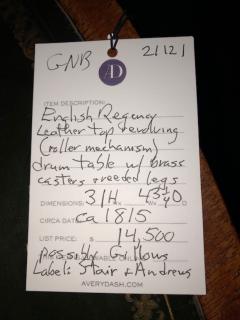 GNB 21121
AD
ITEM DESCRIPTION:
English Regency
Leather top revolving
(roller mechanism)
drum table w/ brass
casters & reeded legs
DIMENSIONS: 31H x W x D
CIRCA DATE: ca 1815
LIST PRICE: $ 14,500
possibly Gillows
Label: Stair & Andrews
AVERYDASH.COM